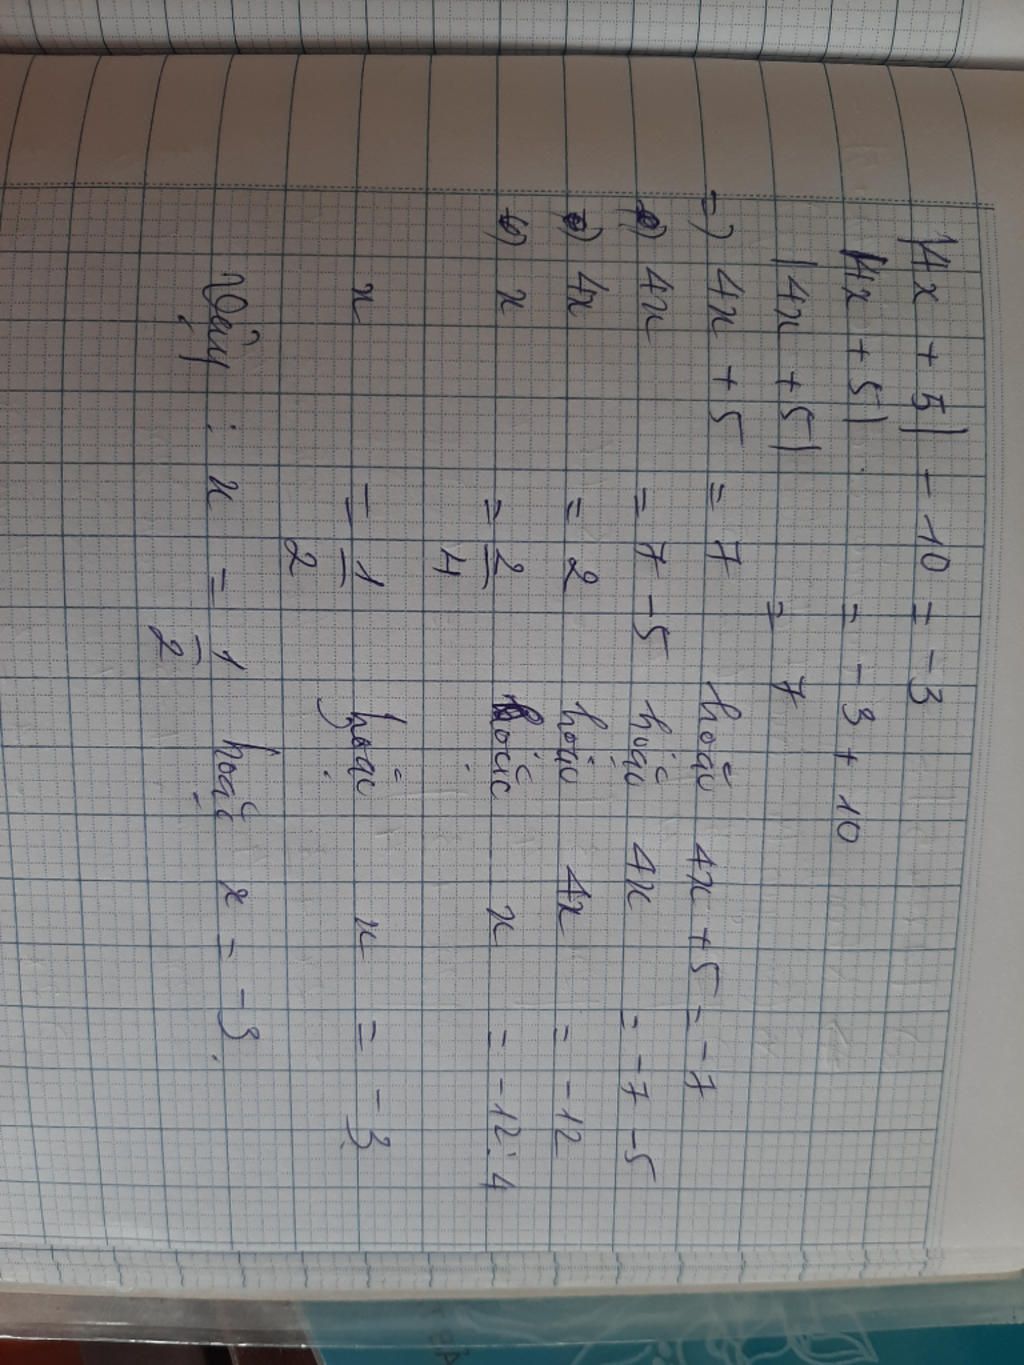 |4x + 5| - 10 = -3
|4x + 5| = -3 + 10
|4x + 5| = 7
=) 4x + 5 = 7 hoặc 4x + 5 = -7
4x = 7 - 5 hoặc 4x = -7 - 5
4x = 2 hoặc 4x = -12
x = 2/4 hoặc x = -12 : 4
x = 1/2 hoặc x = -3
Vậy : x = 1/2 hoặc x = -3.